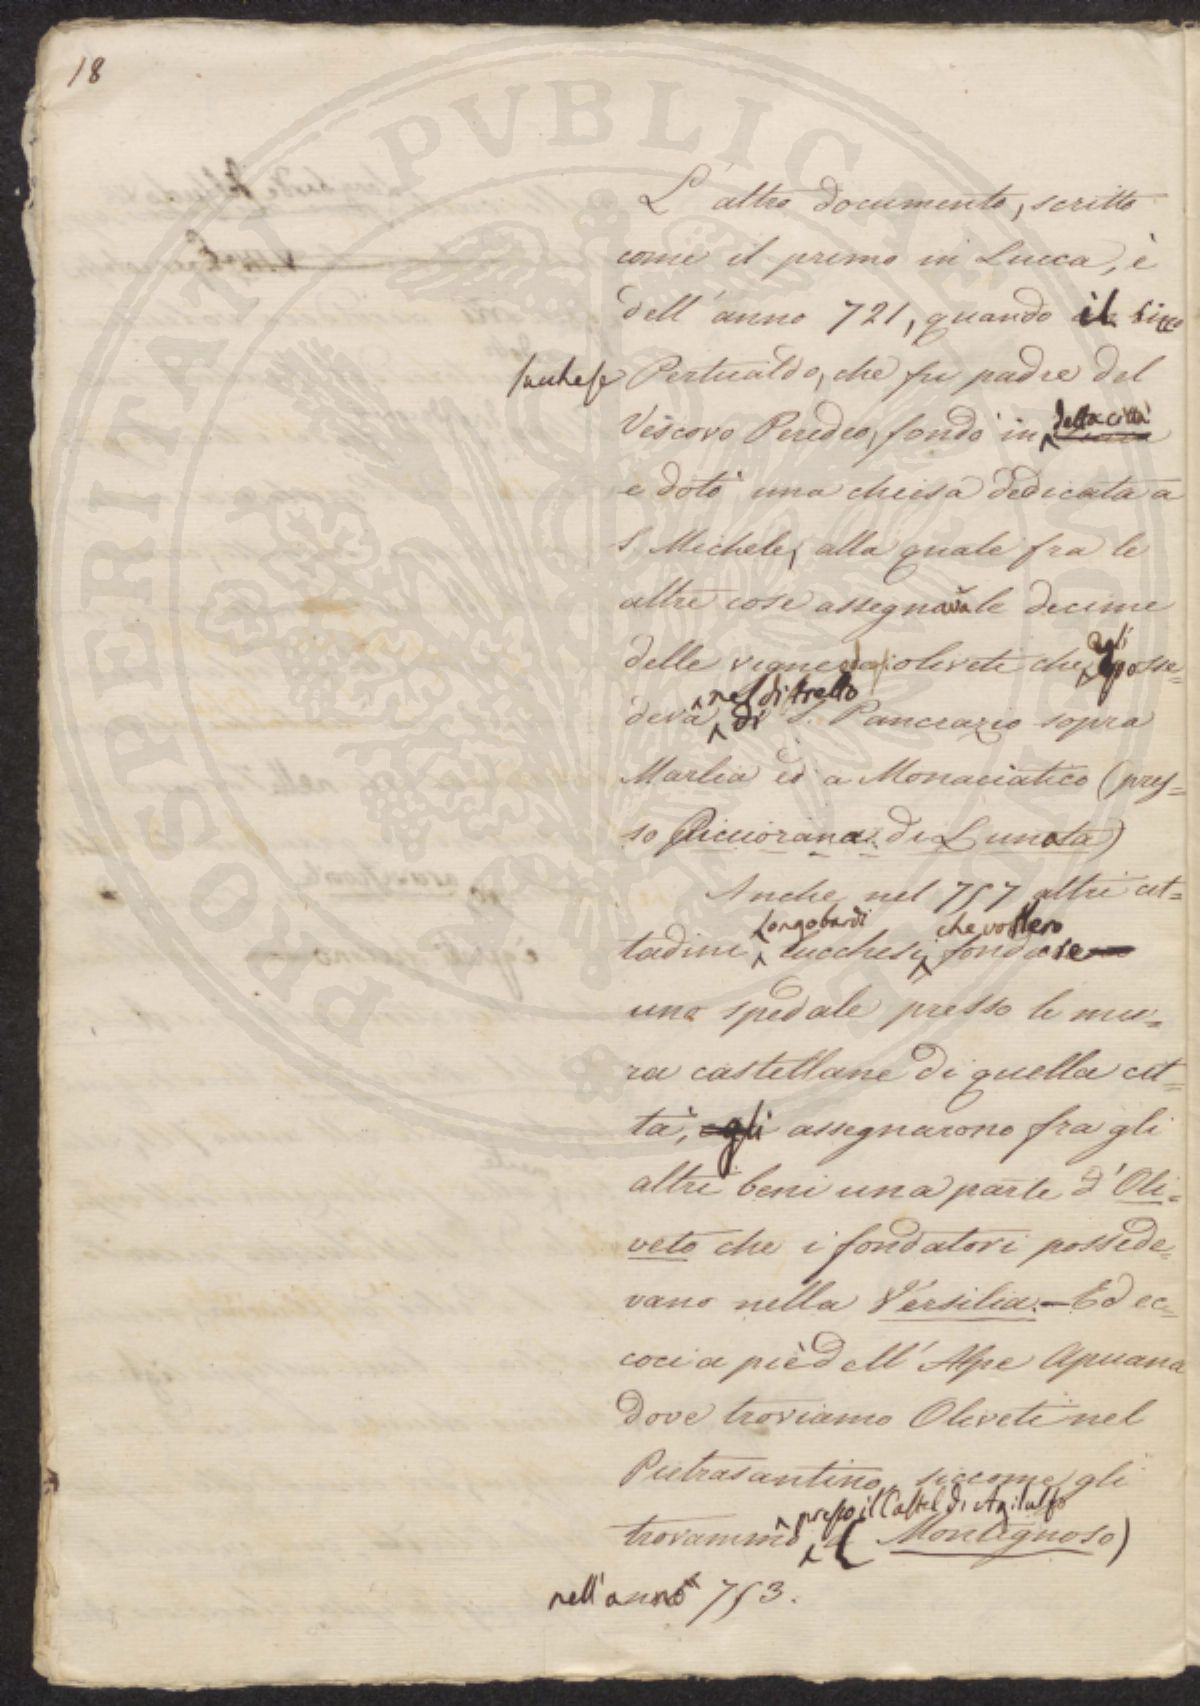 18
L'altro documento, scritto
come il primo in Lucca, è
dell'anno 721, quando il ricco
lucchese Pertualdo, che fu padre del
Vescovo Peredeo, fondò in della città
e dotò una chiesa dedicata a
S. Michele, alla quale fra le
altre cose assegnava le decime
delle vigne e oliveti che egli posse=
deva nel distretto di S. Pancrazio sopra
Marlia ed a Monaciatico (pres=
so Picciorana di Lunata)
Anche nel 757 altri cit=
tadini Longobardi lucchesi che vollero fondare
uno spedale presso le mu=
ra castellane di quella cit=
tà, gli assegnarono fra gli
altri beni una parte d'Oli=
veto che i fondatori possede=
vano nella Versilia. — Ed ec=
coci a piè dell'Alpe Apuana
dove troviamo Oliveti nel
Pietrasantino, siccome gli
trovammo presso il Castel di Agilulfo (Montignoso)
nell'anno 753.
PROSPERITATI PVBLICAE